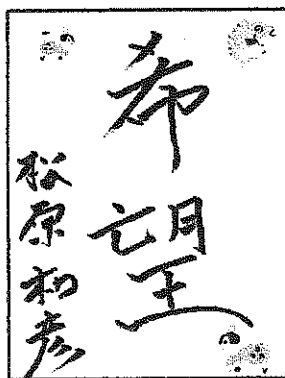 希望
松原和彦